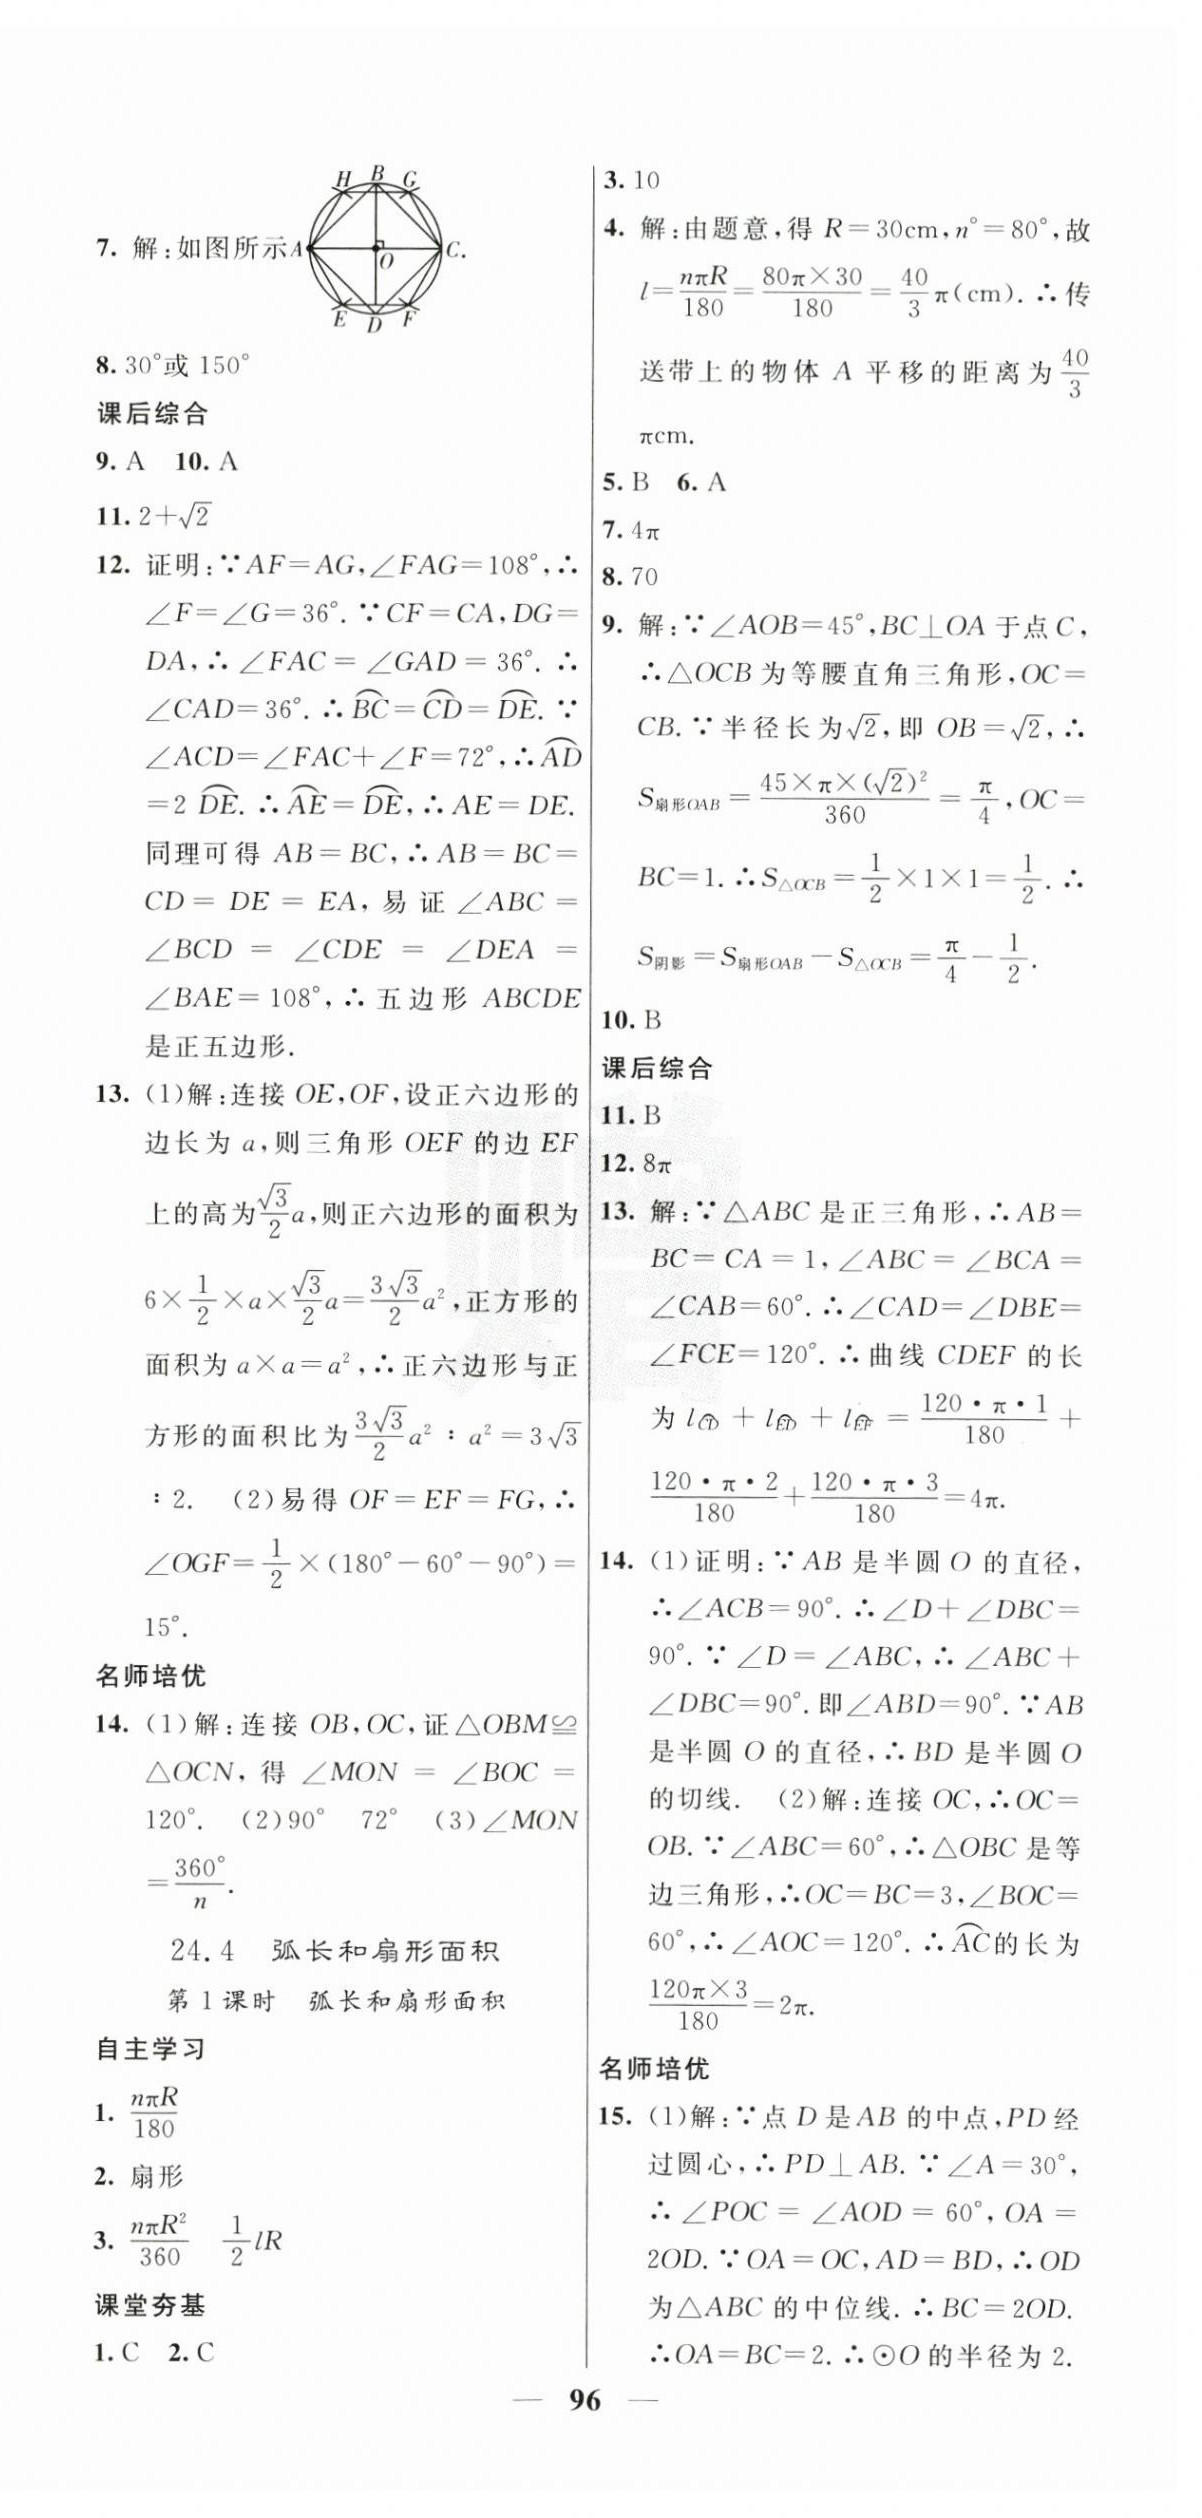 H B G
7. 解:如图所示A O C.
E D F
8. 30°或 150°
课后综合
9. A 10. A
11. 2+√2
12. 证明:∵AF=AG,∠FAG=108°,∴
∠F=∠G=36°. ∵CF=CA,DG=
DA,∴∠FAC=∠GAD=36°. ∴
∠CAD=36°. ∴B͡C=C͡D=D͡E. ∵
∠ACD=∠FAC+∠F=72°,∴A͡D
=2 D͡E. ∴A͡E=D͡E,∴AE=DE.
同理可得 AB=BC,∴AB=BC=
CD=DE=EA,易证∠ABC=
∠BCD=∠CDE=∠DEA=
∠BAE=108°,∴五边形 ABCDE
是正五边形.
13. (1)解:连接 OE,OF,设正六边形的
边长为 a,则三角形 OEF 的边 EF
上的高为 √3/2 a,则正六边形的面积为
6×1/2×a×√3/2 a=3√3/2 a²,正方形的
面积为 a×a=a²,∴正六边形与正
方形的面积比为 3√3/2 a² : a²=3√3
: 2. (2)易得 OF=EF=FG,∴
∠OGF=1/2×(180°-60°-90°)=
15°.
名师培优
14. (1)解:连接 OB,OC,证△OBM≌
△OCN,得∠MON=∠BOC=
120°. (2)90° 72° (3)∠MON
=360°/n.
24.4 弧长和扇形面积
第 1 课时 弧长和扇形面积
自主学习
1. nπR/180
2. 扇形
3. nπR²/360 1/2 lR
课堂夯基
1. C 2. C
3. 10
4. 解:由题意,得 R=30cm,n°=80°,故
l=nπR/180=80π×30/180=40/3 π(cm). ∴传
送带上的物体 A 平移的距离为 40/3
πcm.
5. B 6. A
7. 4π
8. 70
9. 解:∵∠AOB=45°,BC⊥OA 于点 C,
∴△OCB 为等腰直角三角形,OC=
CB. ∵半径长为√2,即 OB=√2,∴
S扇形OAB=45×π×(√2)²/360=π/4,OC=
BC=1. ∴S△OCB=1/2×1×1=1/2. ∴
S阴影=S扇形OAB-S△OCB=π/4-1/2.
10. B
课后综合
11. B
12. 8π
13. 解:∵△ABC 是正三角形,∴AB=
BC=CA=1,∠ABC=∠BCA=
∠CAB=60°. ∴∠CAD=∠DBE=
∠FCE=120°. ∴曲线 CDEF 的长
为 lC͡D+lE͡D+lE͡F=120·π·1/180+
120·π·2/180+120·π·3/180=4π.
14. (1)证明:∵AB 是半圆 O 的直径,
∴∠ACB=90°. ∴∠D+∠DBC=
90°. ∵∠D=∠ABC,∴∠ABC+
∠DBC=90°.即∠ABD=90°. ∵AB
是半圆 O 的直径,∴BD 是半圆 O
的切线. (2)解:连接 OC,∴OC=
OB. ∵∠ABC=60°,∴△OBC 是等
边三角形,∴OC=BC=3,∠BOC=
60°,∴∠AOC=120°. ∴A͡C的长为
120π×3/180=2π.
名师培优
15. (1)解:∵点 D 是 AB 的中点,PD 经
过圆心,∴PD⊥AB. ∵∠A=30°,
∴∠POC=∠AOD=60°,OA=
2OD. ∵OA=OC,AD=BD,∴OD
为△ABC 的中位线. ∴BC=2OD.
∴OA=BC=2. ∴⊙O 的半径为 2.
— 96 —